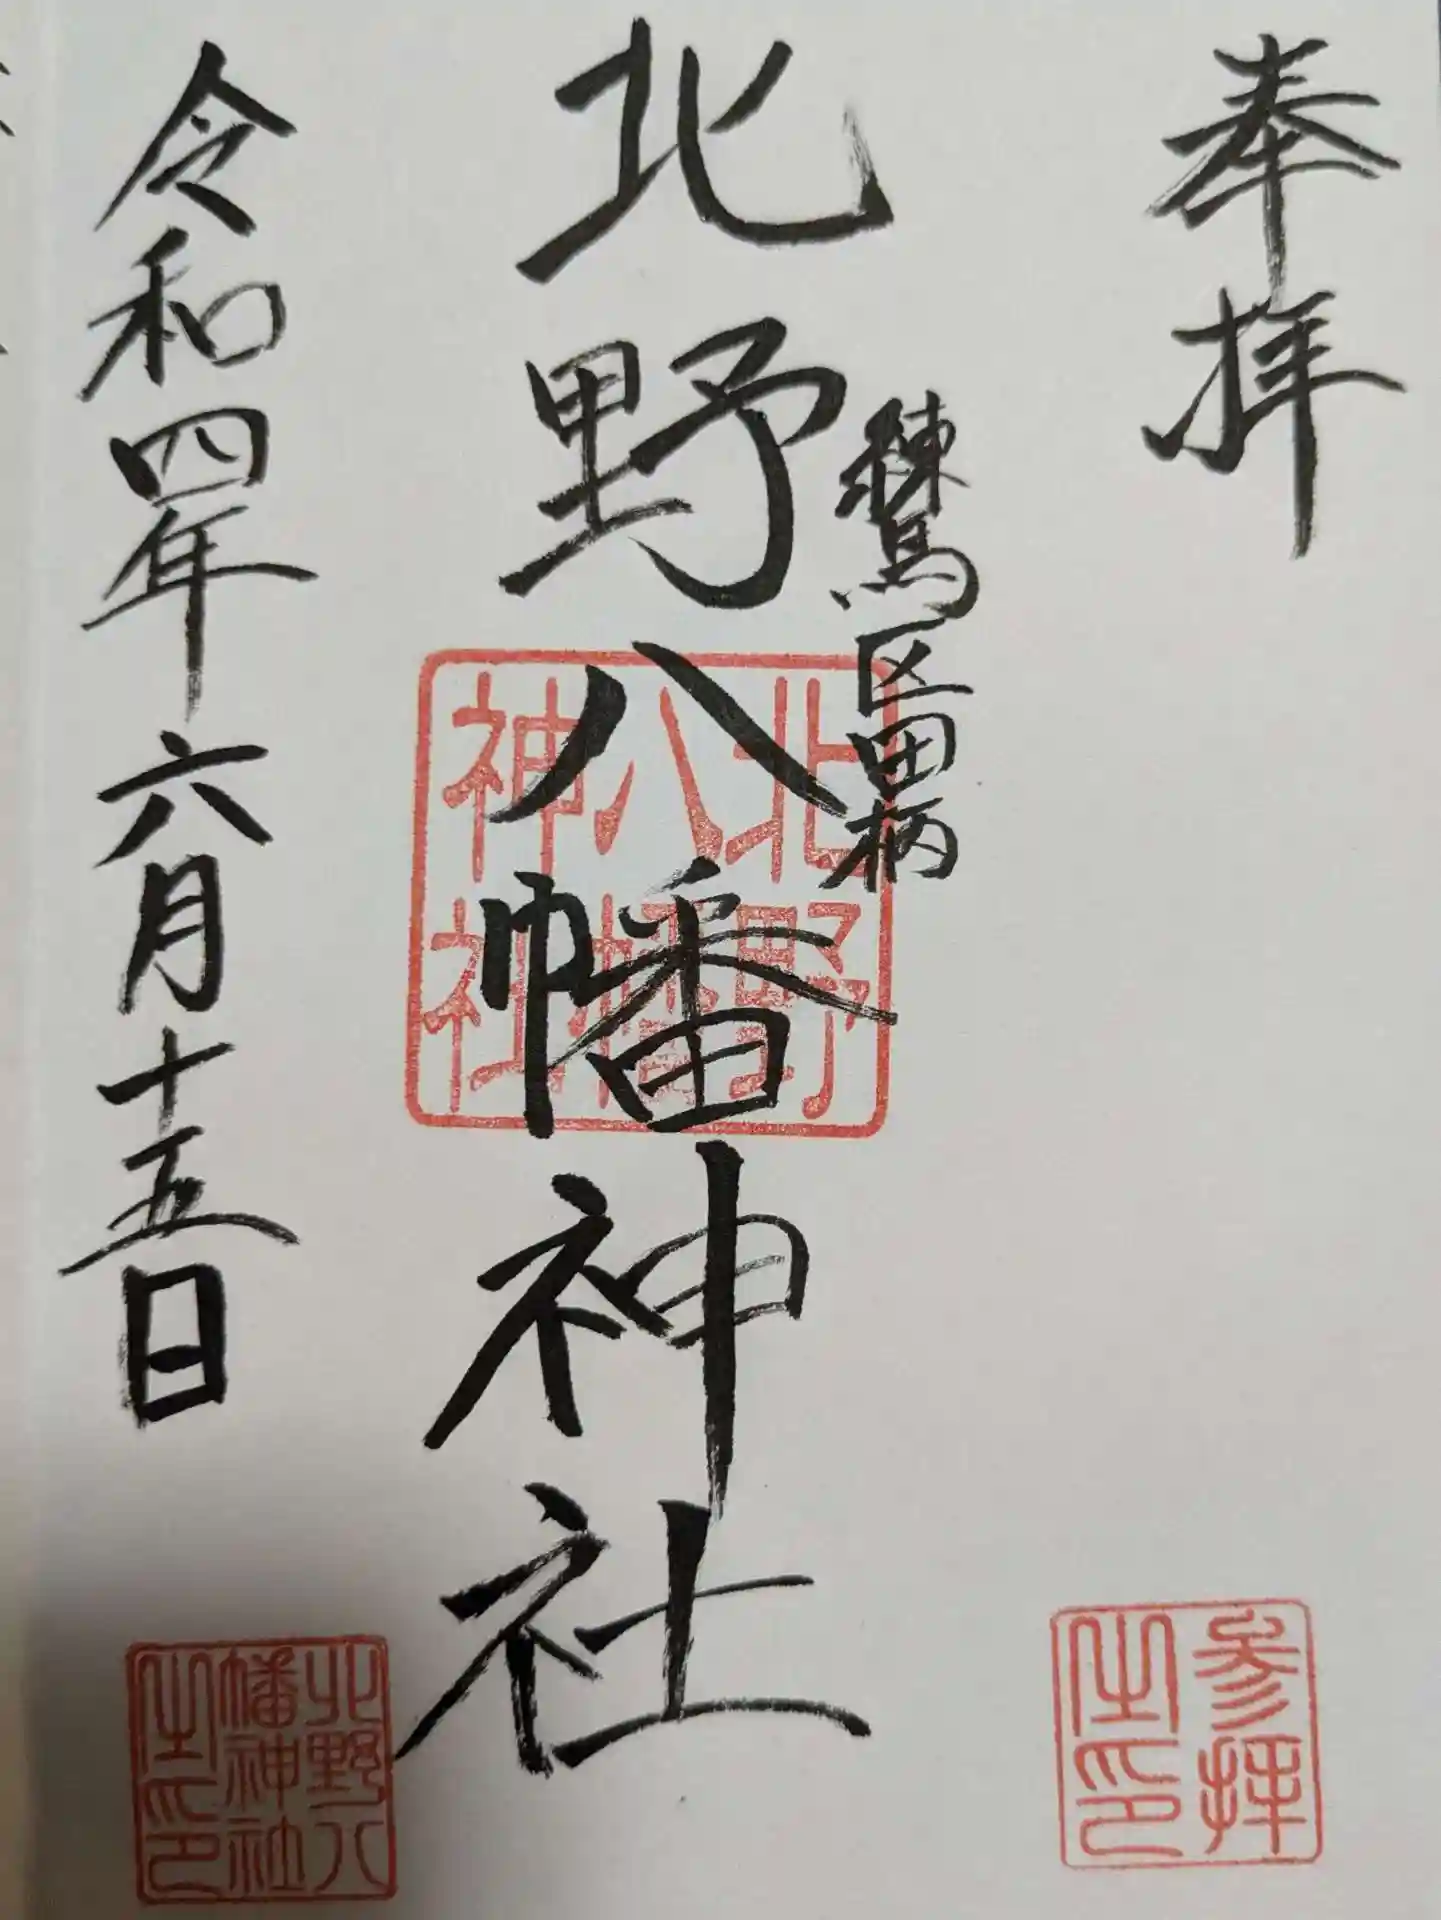 奉拝
練馬区田柄
北野八幡神社
令和四年六月十五日
北野
八幡
神社
参拝
之印
北野八
幡神社
之印